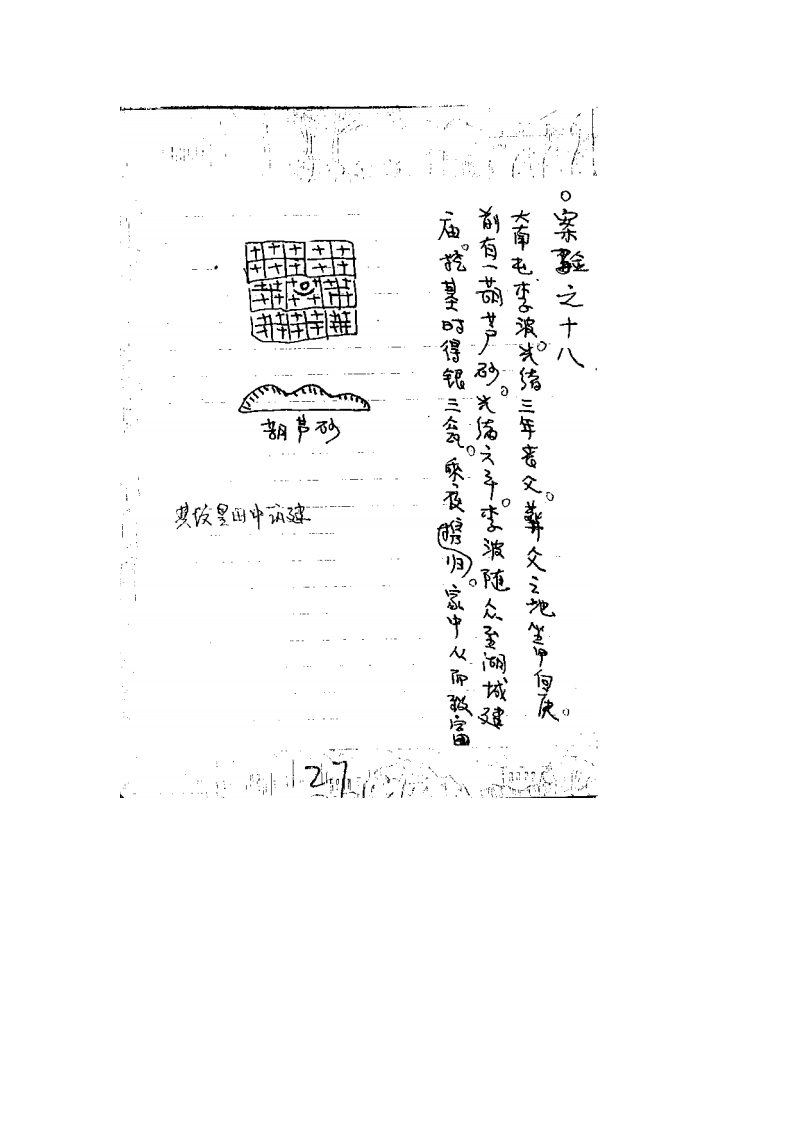 。案验之十八
大南屯李波。光绪三年丧父。葬父之地坐甲向庚。
前有一葫芦砂。光绪六年。李波随众至湖城建
庙。挖墓时得银三瓮。乘夜携归。家中从而致富
葫芦砂
其坟是田中所建
127